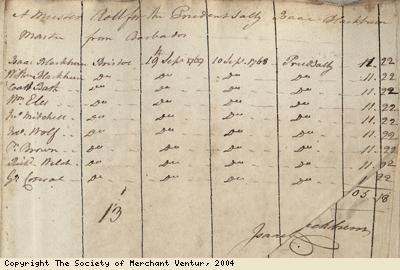 A Muster Roll for the Prudent Sally Isaac Blackburn
Master from Barbados
Isaac Blackburn Bristol 19 Sept 1767 10 Sept 1768 Pru Sally 11 22
Blackburn Do Do Do Do 11 22
Do Do Do Do 11 22
Wm Eles Do Do Do Do 11 22
Jno Mitchell Do Do Do Do 11 22
Wolf Do Do Do Do 11 22
Brown Do Do Do Do 11 22
Richd Welch Do Do Do Do 11 22
Do Do Do Do 11 22
13
105 18
Isaac Blackburn
Copyright The Society of Merchant Ventur, 2004